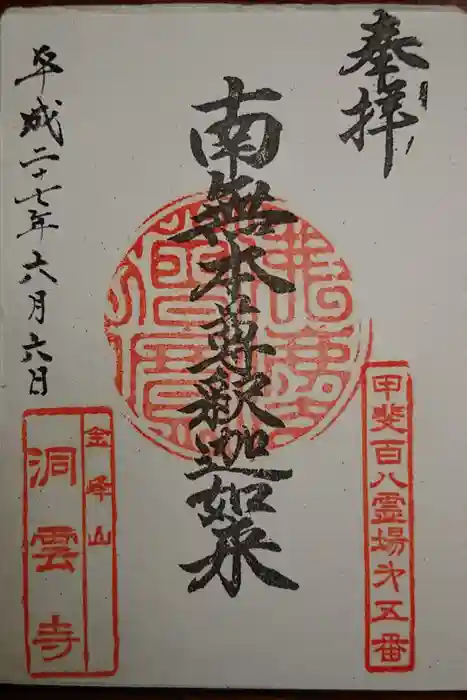 奉拝
甲斐百八霊場第五番
南無本尊釈迦如来
平成二十七年六月六日
金峰山
洞雲寺